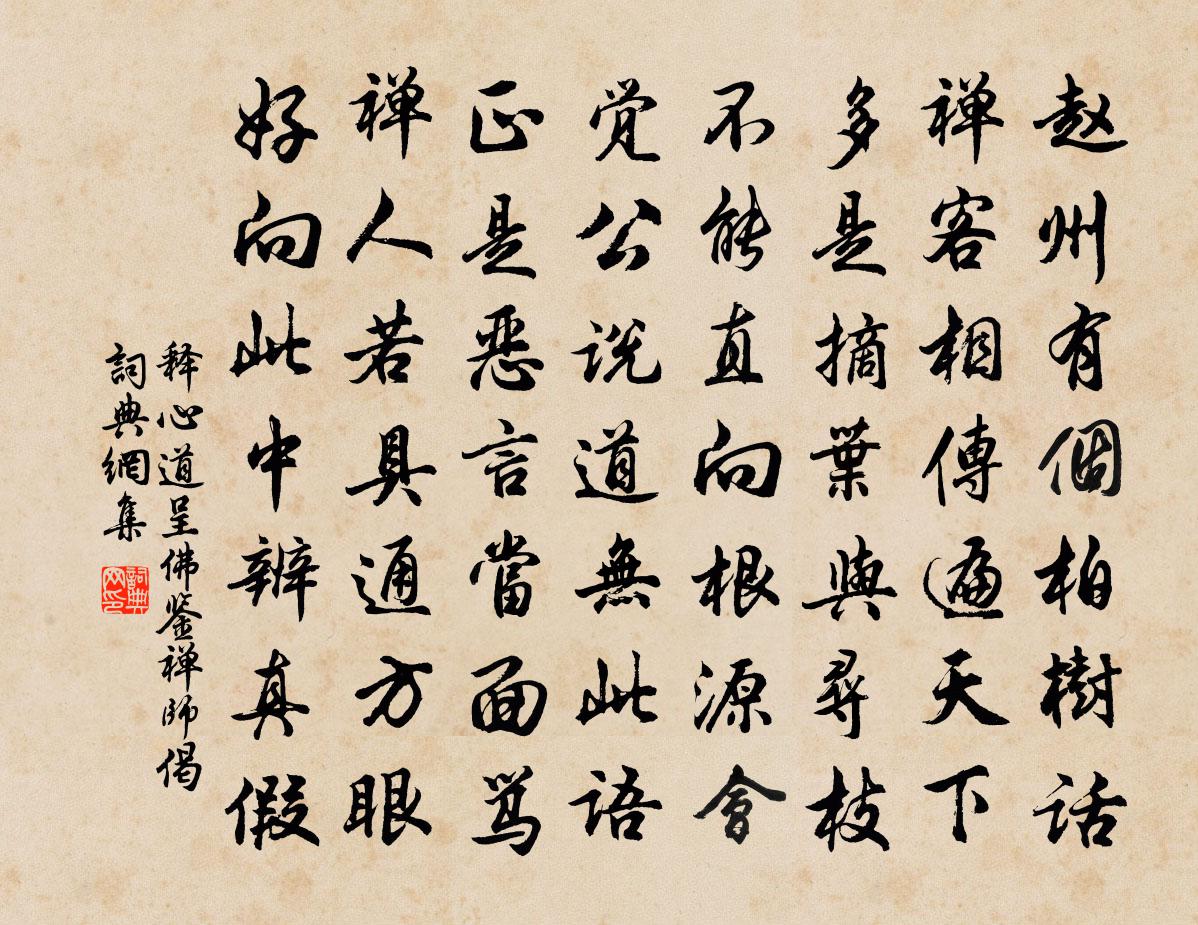 赵州有個柏樹话
禅客相傳遍天下
多是摘葉與尋枝
不能直向根源會
觉公说道無此语
正是恶言當面骂
禅人若具通方眼
好向此中辨真假
释心道呈佛鉴禅师偈
詞典網集
詞典网印